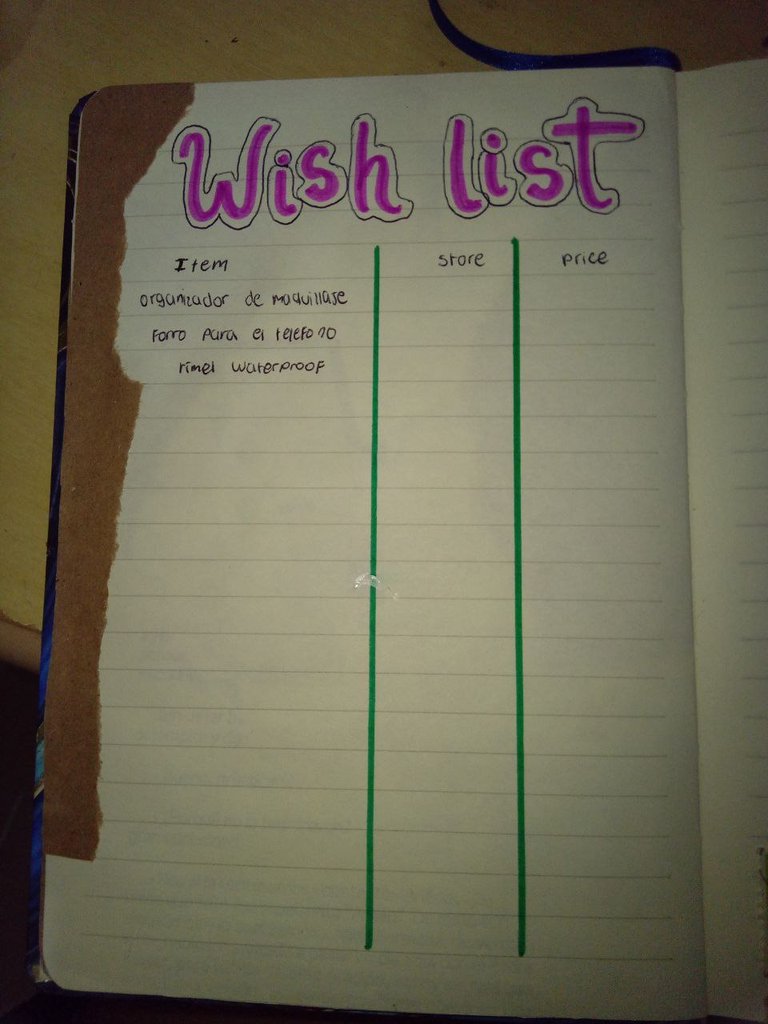 Wish list
Item store price
organizador de maquillase
forro para el telefono
rimel waterproof